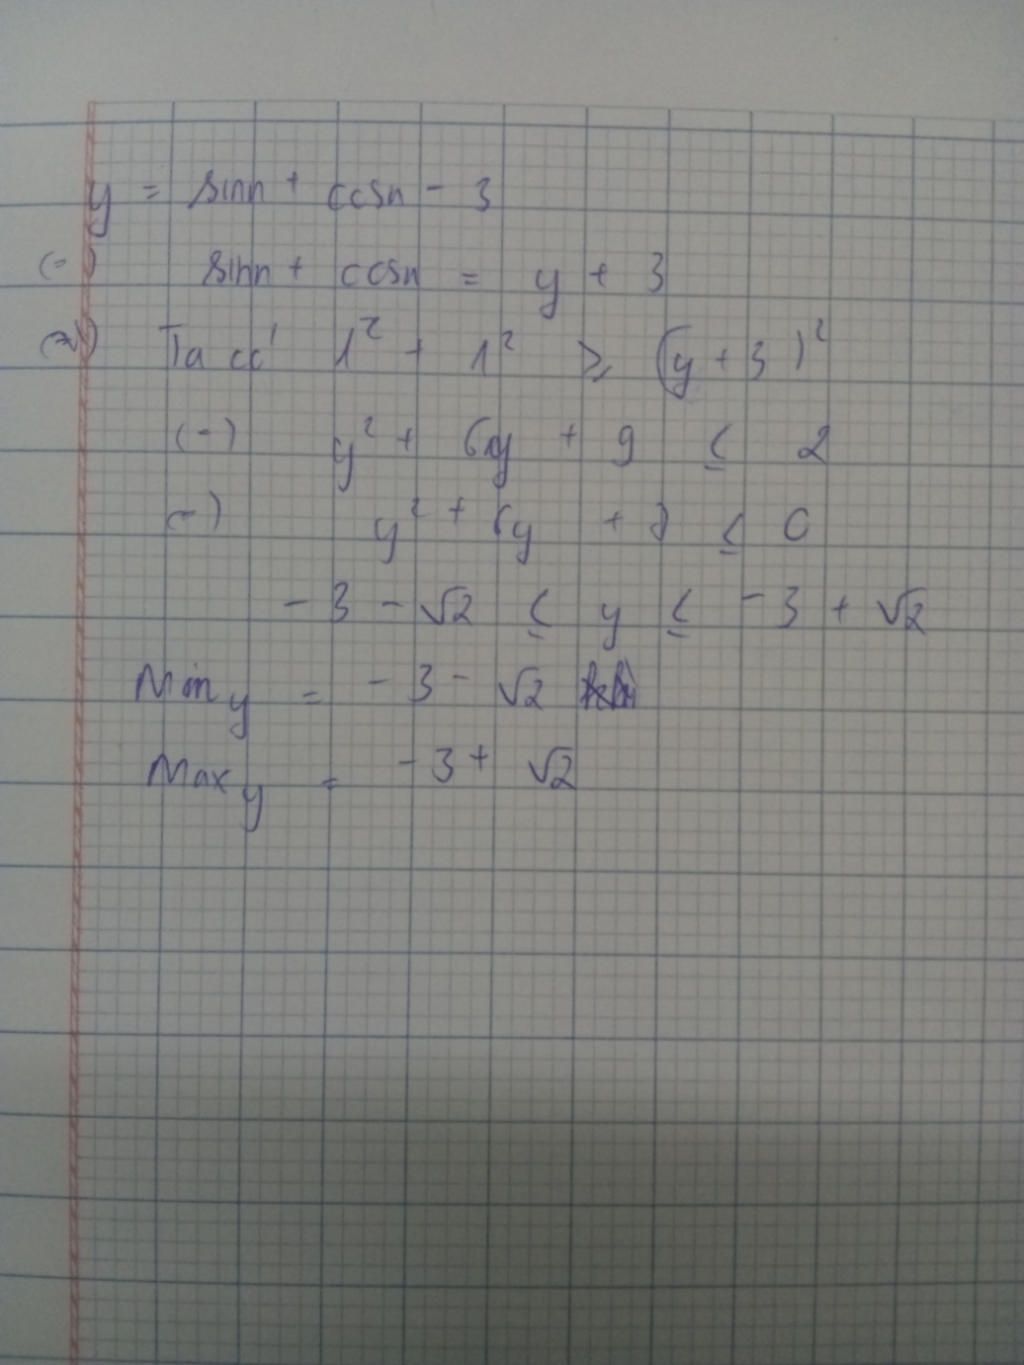 y = sinx + cosx - 3
(=) sinx + cosx = y + 3
Ta có 1² + 1² ≥ (y + 3)²
(=) y² + 6y + 9 ≤ 2
(=) y² + 6y + 7 ≤ 0
-3 - √2 ≤ y ≤ -3 + √2
Min y = -3 - √2
Max y = -3 + √2